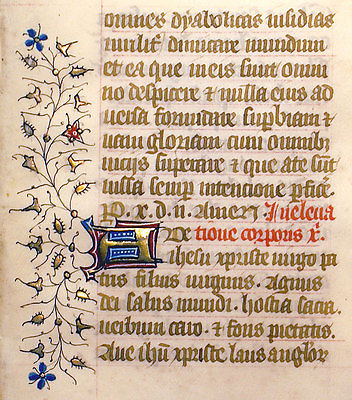 omnes dyabolicas insidias
virilit̃ dimicare mundum
et ea que in eis sunt omni
no despicere ⁊ nulla eius ad
versa formidare sup̱biam ⁊
vanī gloriam cum omnibꝫ
vicijs superare ⁊ que a te sũt
iussa semp̱ intencione p̱fice̱
P. x. d. n. Amen In eleva
tione corporis x̄.
Ave ihesu xpriste virgo pa
tris filius virginis. Agnus
dei salus mundi. hostia sacra.
verbum caro. ⁊ fons pietatis.
Ave ihũ xpriste laus anglor̄